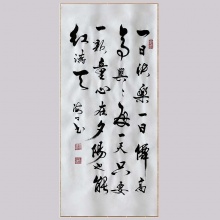 一日快樂一日僊高
高興〻每一天只要
一顆童心在夕陽也能
紅滿天